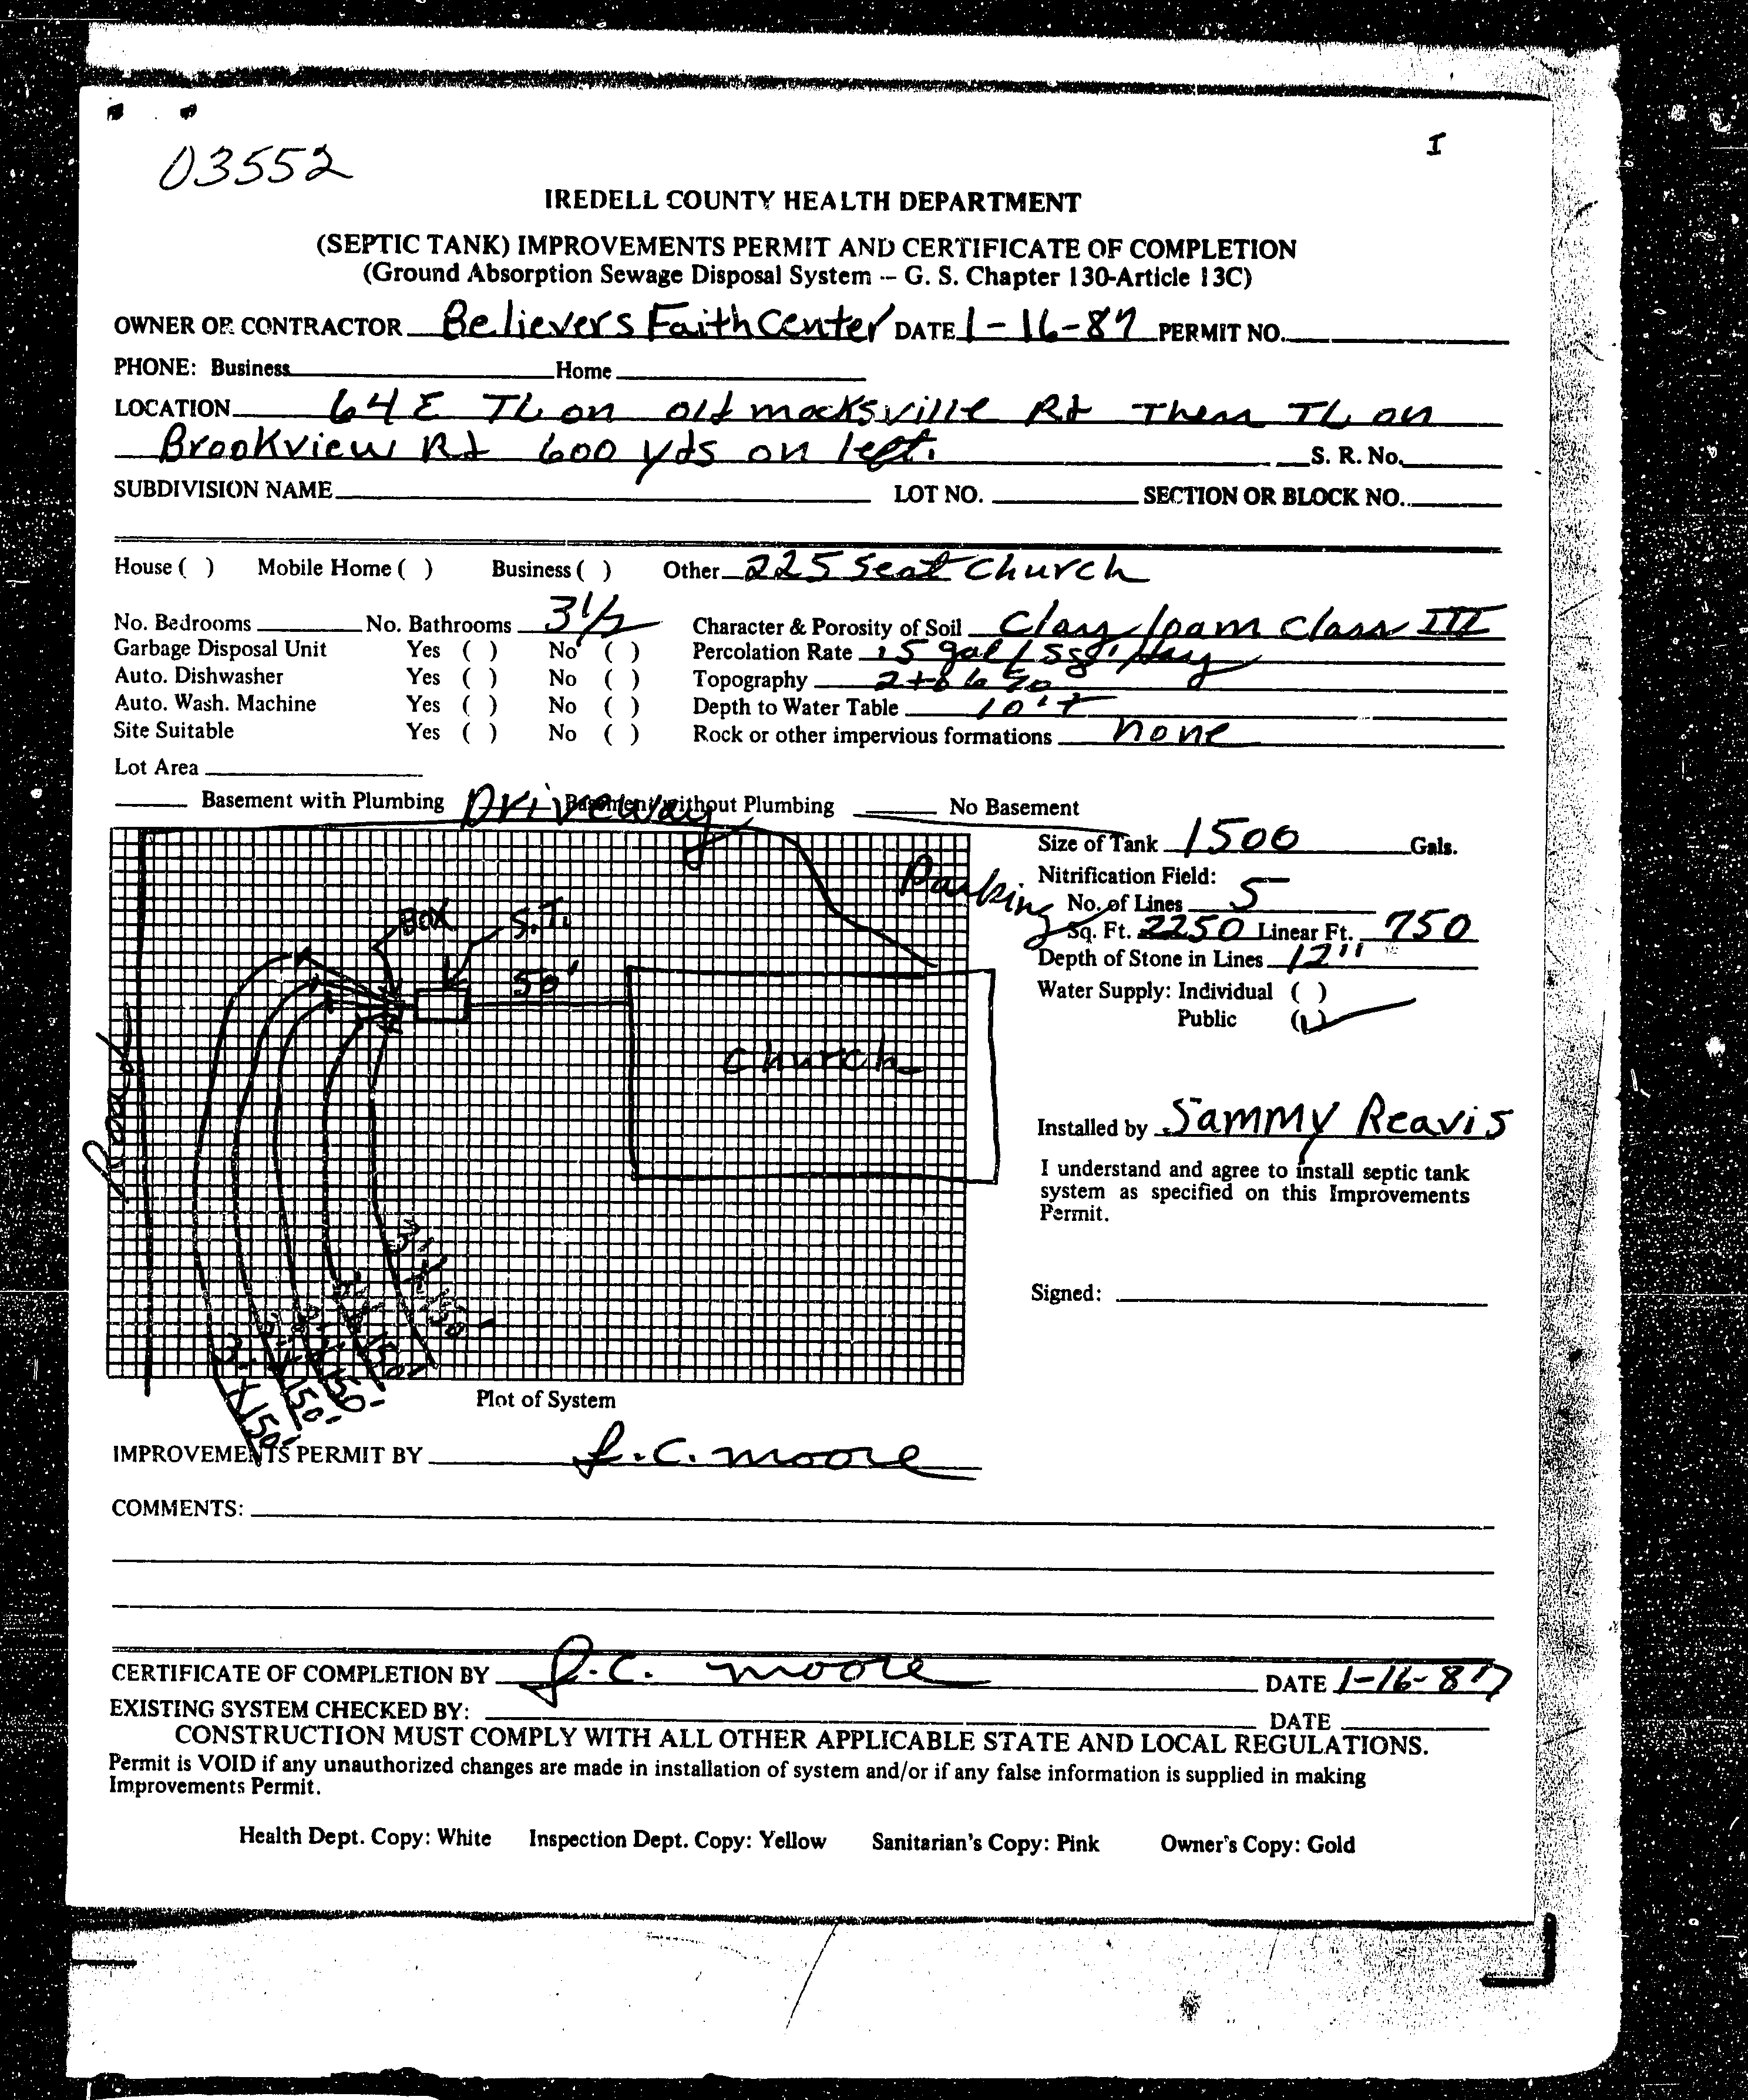 I
03552
IREDELL COUNTY HEALTH DEPARTMENT
(SEPTIC TANK) IMPROVEMENTS PERMIT AND CERTIFICATE OF COMPLETION
(Ground Absorption Sewage Disposal System -- G. S. Chapter 130-Article 13C)
OWNER OR CONTRACTOR Believers Faith Center DATE 1-16-87 PERMIT NO.
PHONE: Business Home
LOCATION 64 E TL on old mocksville Rd Then TL on
Brookview Rd 600 yds on left. S. R. No.
SUBDIVISION NAME LOT NO. SECTION OR BLOCK NO.
House ( ) Mobile Home ( ) Business ( ) Other 225 Seat Church
No. Bedrooms No. Bathrooms 3 1/2 Character & Porosity of Soil Clay loam Class III
Garbage Disposal Unit Yes ( ) No ( ) Percolation Rate .5 gal/ day
Auto. Dishwasher Yes ( ) No ( ) Topography 2 to 6 %
Auto. Wash. Machine Yes ( ) No ( ) Depth to Water Table 10'+
Site Suitable Yes ( ) No ( ) Rock or other impervious formations none
Lot Area
Basement with Plumbing Basement without Plumbing No Basement
Driveway
Size of Tank 1500 Gals.
Parking
Nitrification Field:
No. of Lines 5
Sq. Ft. 2250 Linear Ft. 750
Depth of Stone in Lines 12"
Box S.T.
50'
Water Supply: Individual ( )
Public (✓)
Road
Church
Installed by Sammy Reavis
I understand and agree to install septic tank
system as specified on this Improvements
Permit.
3'x150'
Signed:
150'
150'
150'
X150'
Plot of System
IMPROVEMENTS PERMIT BY J.C. Moore
COMMENTS:
CERTIFICATE OF COMPLETION BY J.C. Moore DATE 1-16-87
EXISTING SYSTEM CHECKED BY: DATE
CONSTRUCTION MUST COMPLY WITH ALL OTHER APPLICABLE STATE AND LOCAL REGULATIONS.
Permit is VOID if any unauthorized changes are made in installation of system and/or if any false information is supplied in making
Improvements Permit.
Health Dept. Copy: White Inspection Dept. Copy: Yellow Sanitarian's Copy: Pink Owner's Copy: Gold